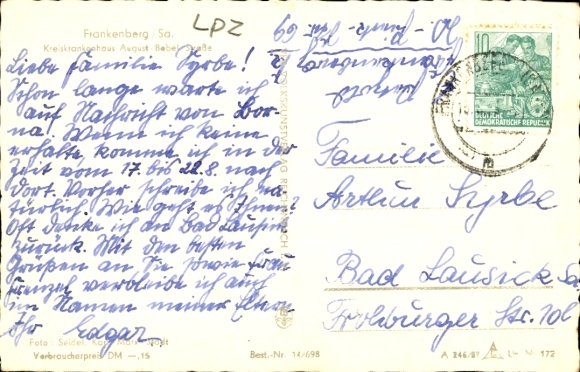 Frankenberg Sa.
Kreiskrankenhaus August Bebel Straße
LPZ
Liebe Familie Syrbe!
Schon lange warte ich
auf Nachricht von Bor-
na! Wenn ich keine
erhalte, komme ich in der
Zeit vom 17. bis 22.8. nach
dort. Vorher schreibe ich na-
türlich. Wie geht es Ihnen?
Oft denke ich an Bad Lausick
zurück. Mit den besten
Grüßen an Sie sowie Frau
Frenzel verbleibe ich auch
im Namen meiner Eltern
Ihr Edgar.
Foto: Seidel
Verbraucherpreis DM —,15
Best.-Nr. 14/698
A 246/57
172
10
DEUTSCHE
DEMOKRATISCHE REPUBLIK
Familie
Arthur Syrbe
Bad Lausick Sa.
Frohburger Str. 101